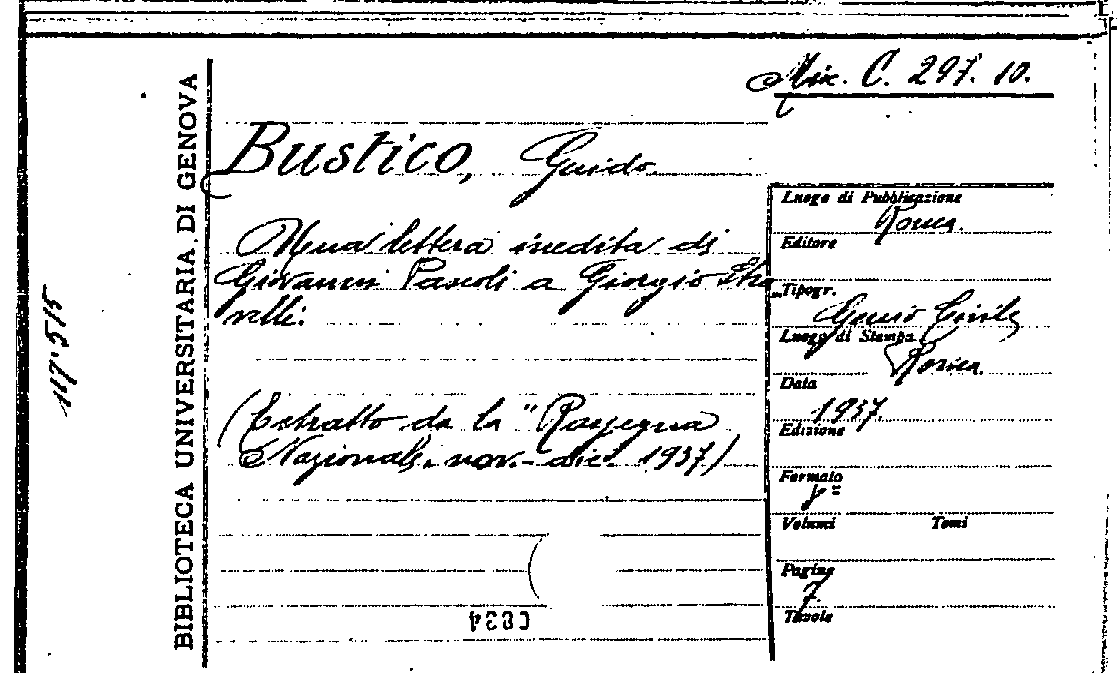 Misc. C. 297. 10.
BIBLIOTECA UNIVERSITARIA DI GENOVA
117.515
Bustico, Guido
Una lettera inedita di
Giovanni Pascoli a Giorgio
(Estratto da la "Rassegna
Nazionale. nov.-dic. 1937)
Luogo di Pubblicazione
Roma.
Editore
Tipogr.
Genio Civile
Luogo di Stampa
Roma.
Data
1937.
Edizione
Formato
Volumi Tomi
Pagine
7.
Tavole